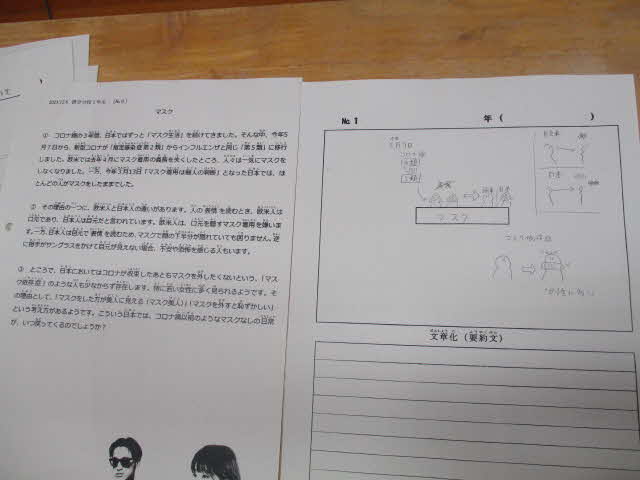 マスク
① コロナ禍の3年間、日本ではずっと「マスク生活」を続けてきました。そんな中、今年5
月7日から、新型コロナが「指定感染症第2類」からインフルエンザと同じ「第5類」に移行
しました。欧米では去年4月にマスク着用の義務を失くしたところ、人々は一気にマスクを
しなくなりました。一方、今年3月13日「マスク着用は個人の判断」となった日本では、ほ
とんどの人がマスクをしたままでした。
② その理由の一つに、欧米人と日本人の違いがあります。人の表情を読むとき、欧米人は
口元であり、日本人は目元だと言われています。欧米人は、口元を隠すマスク着用を嫌いま
す。一方、日本人は目元で表情を読むため、マスクで顔の下半分が隠れていても困りません。逆
に相手がサングラスをかけて目元が見えない場合、不安や恐怖を感じる人もいます。
③ ところで、日本においてはコロナが収束したあともマスクを外したくないという、「マス
ク依存症」のような人も少なからず存在します。特に若い女性に多く見られるようです。そ
の理由として、「マスクをした方が美人に見える「マスク美人」」「マスクを外すと恥ずかしい」
という考え方があるようです。こういう日本では、コロナ禍以前のようなマスクなしの日常
が、いつ戻ってくるのでしょうか?
No.1 年( )
5月7日
コロナ
マスク
日本
文章化(要約文)